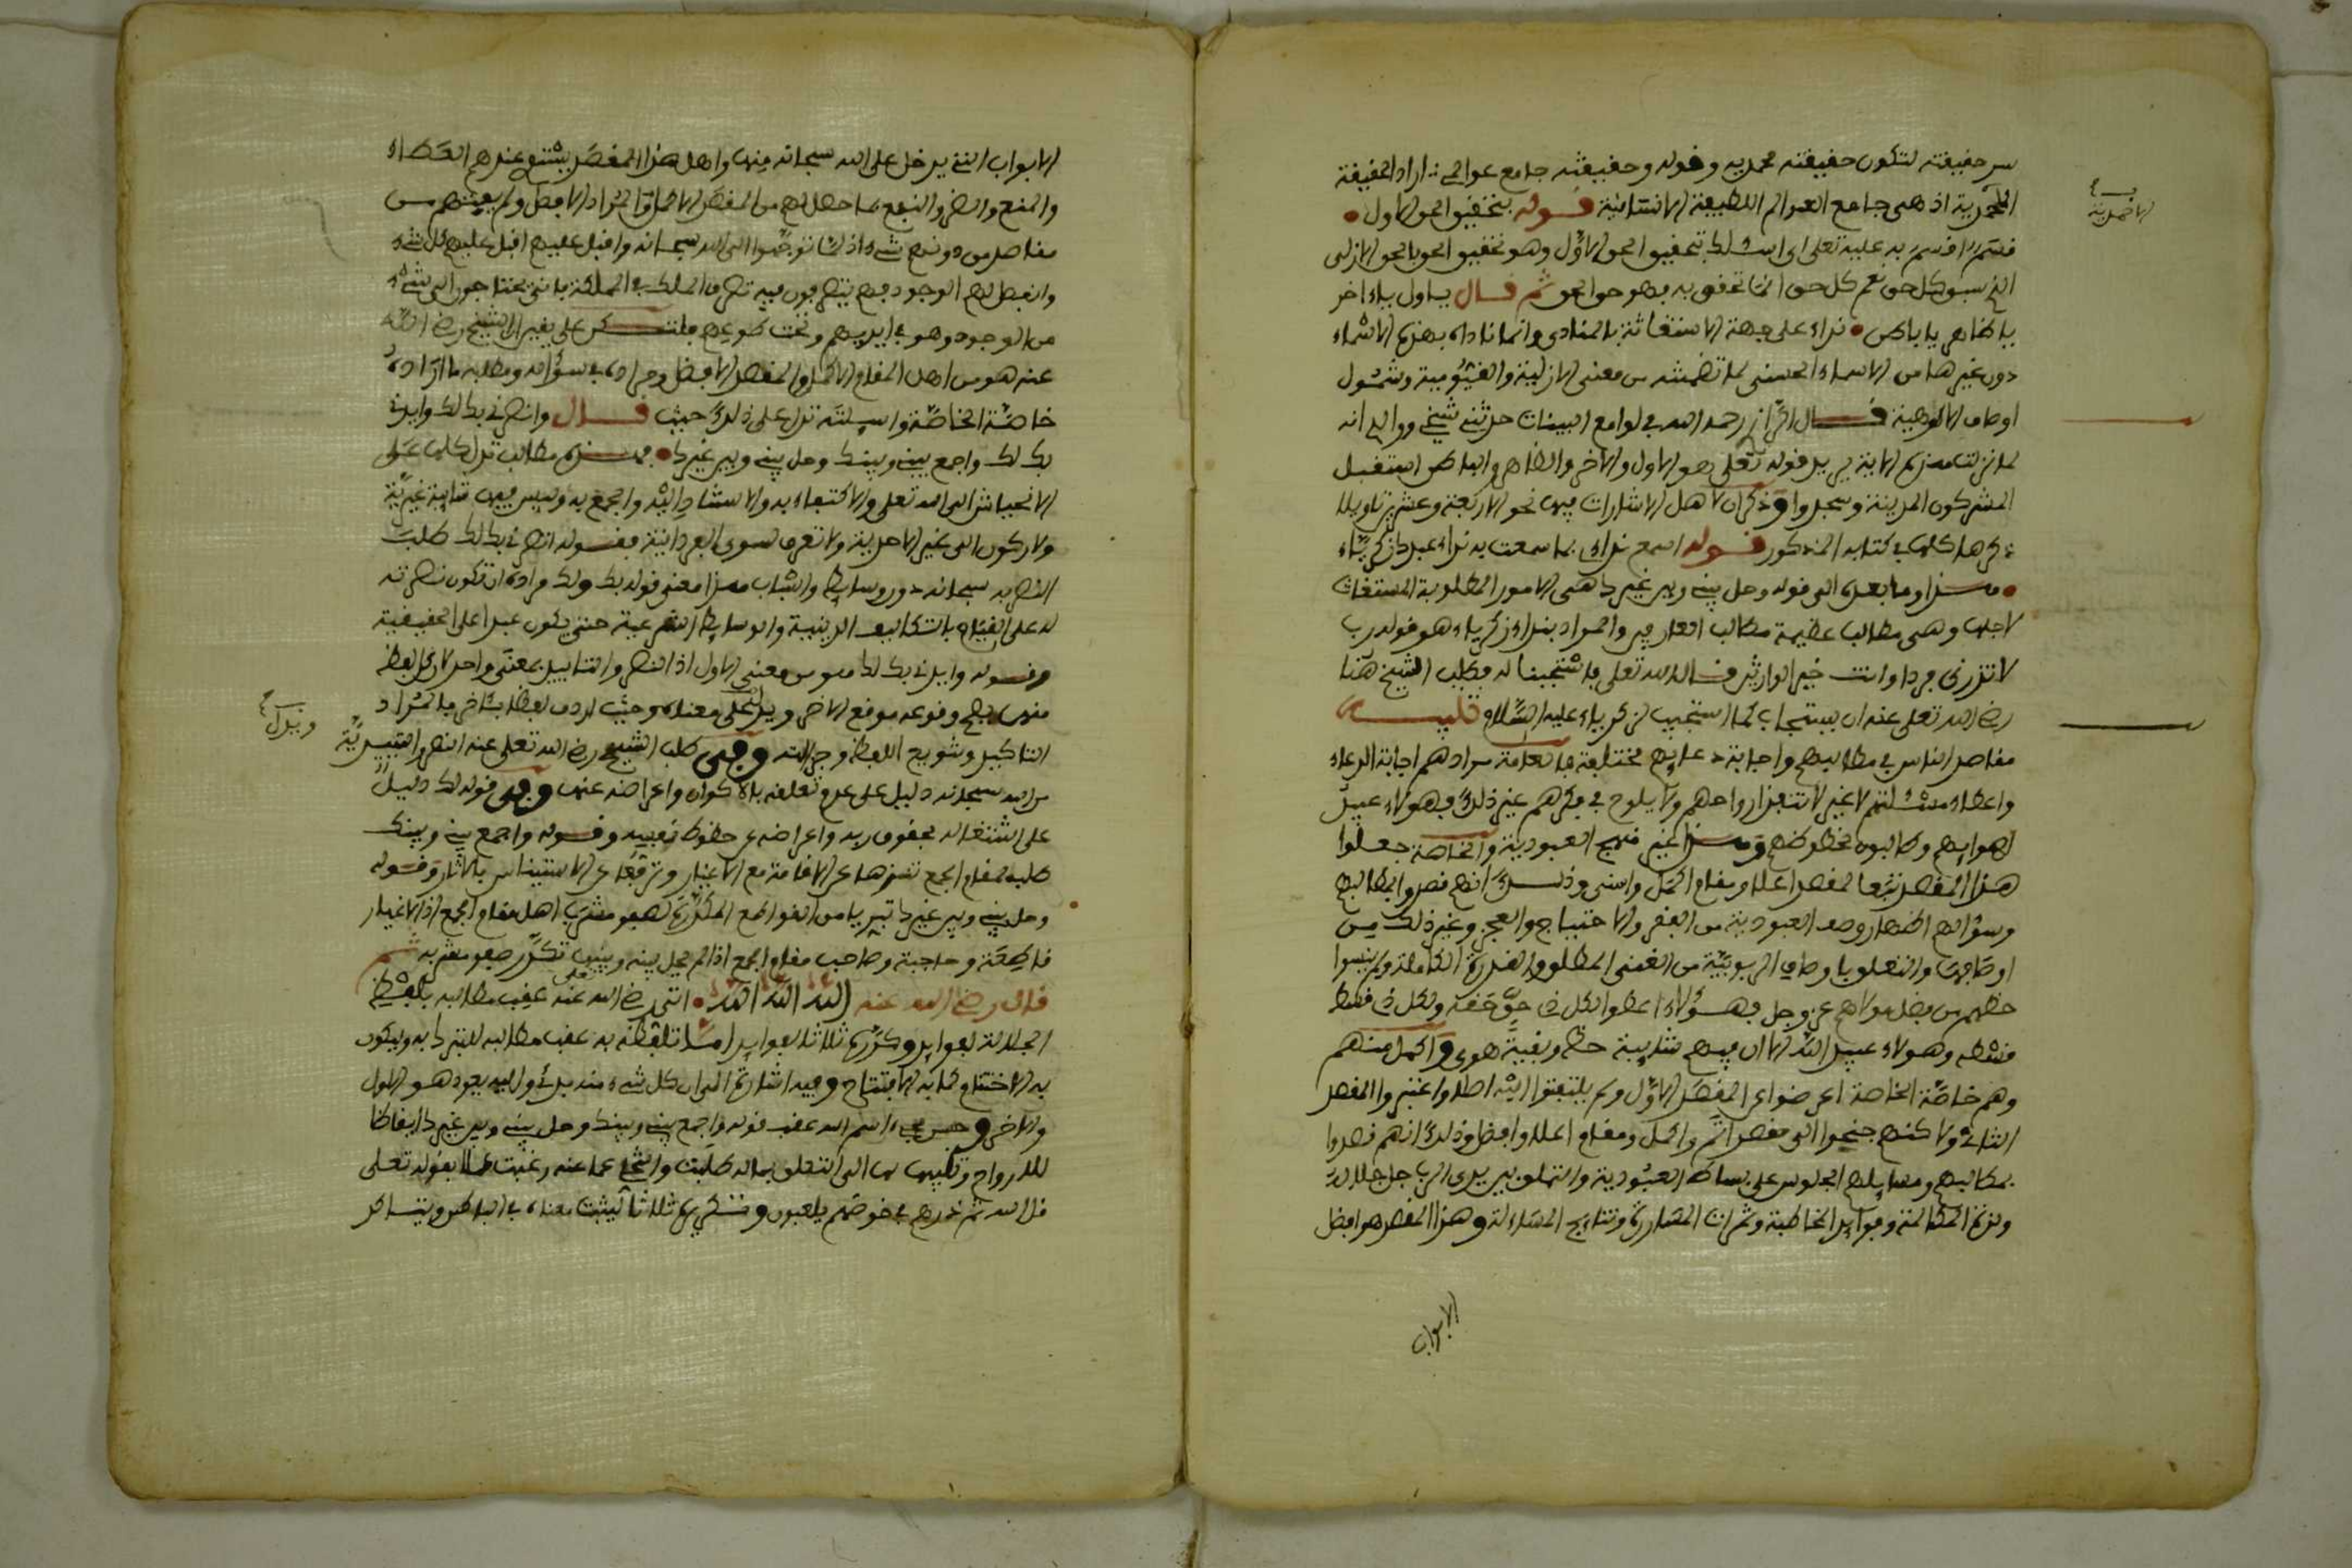 سر حقيقته لتكون حقيقته محمديه وقوله وحقيقته جامع عوالمي اراد الحقيقة
المحمدية اذ هي جامع العوالم اللطيفة الانسانية قوله بتحقيق الحق الاول
قسم اقسم به عليه تعلى اي اسئلك بتحقيق الحق الاول وهو تحقيق الحق بالحق الازلي
الذي سبق كل حق نعم كل حق انما تحقق به فهو حق الحق ثم قال يا اول يا اخر
يا ظاهر يا باطن نداء على جهة الاستغاثة بالمنادى وانما ناداه بهذه الاسماء
دون غيرها من الاسماء الحسنى لما تضمنته من معنى الازلية والقيومية وشمول
اوصاف الالوهية قال رحمه الله في لوامع البينات حدثني شيخي ووالدي انه
لما نزلت هذه الاية يريد قوله تعلى هو الاول والاخر والظاهر والباطن استقبل
المشركون المدينة وسجدوا وذكر ان لاهل الاشارات فيها نحو الاربعة وعشرين تاويلا
ذكرها كلها في كتابه المذكور قوله اسمع نداءي بما سمعت به نداء عبدك زكرياء
هذا وما بعده الى قوله وحل بيني وبين غيرك هي الامور المطلوبة المستغاث
لاجلها وهي مطالب عظيمة مطالب العارفين والمراد بنداء زكرياء هو قوله رب
لا تذرني فردا وانت خير الوارثين قال الله تعلى فاستجبنا له فطلب الشيخ هنا
رضي الله تعلى عنه ان يستجاب له كما استجيب لزكرياء عليه السلام تنبيه
مقاصد الناس في مطالبهم واجابة دعايهم مختلفة فالعامة مرادهم اجابة الدعاء
واعطاء مسئلتهم لا غير لا تنفذ ارواحهم ولا يلوح في فكرهم غير ذلك فهؤلاء عبيد
اهوايهم وطالبون لحظوظهم وهذا غير منهج العبودية والخاصة جعلوا
هذا المقصد تبعا لمقصد اعلا ومقام اكمل واسنى وذلك انهم قصدوا بمطالبهم
وسؤالهم اظهار وصف العبودية من الفقر والاحتياج والعجز وغير ذلك من
اوصافها والتعلق باوصاف الربوبية من الغنى المطلق والقدرة الكاملة ولم ينسوا
حظهم من فضل مولاهم عز وجل فهؤلاء اعطوا لكل ذي حق حقه ولكل ذي قسط
قسطه وهؤلاء عبيد الله الا ان فيهم شايبة حظ وبقية هوى واكمل منهم
وهم خاصة الخاصة اعرضوا عن المقصد الاول ولم يلتفتوا اليه اصلا واعتبروا المقصد
الثاني ولاكنهم جنحوا الى مقصد اتم واكمل ومقام اعلا وافضل وذلك انهم قصدوا
بمطالبهم ومسايلهم الجلوس على بساط العبودية والتملق بين يدي الرب جل جلاله
ولذة المكالمة وفوايد المخاطبة وثمرات المساررة ونتايج المساءلة وهذا المقصد هو افضل
الابواب
الابواب التي يدخل على الله سبحانه منها واهل هذا المقصد يستوي عندهم العطاء
والمنع والضر والنفع لما حصل لهم من المقصد الاكمل والمراد الافضل ولم يفتهم من
مقاصد من دونهم شيء اذ لما توجهوا الى الله سبحانه واقبل عليهم اقبل عليهم كل شيء
وانفعل لهم الوجود فهم يتصرفون فيه تصرف المالك في المملكة فانى يحتاجون الى شيء
من الوجود وهو في ايديهم وتحت طوعهم فلتكن على يقين ان الشيخ رضي الله
عنه هو من اهل المقام الاكمل والمقصد الافضل ومراده في سؤاله ومطالبه ما اراده
خاصة الخاصة واسيلته تدل على ذلك حيث قال وانصرني بك لك وايدني
بك لك واجمع بيني وبينك وحل بيني وبين غيرك فهذه مطالب تدل كلها على
الانحياش الى الله تعلى والاكتفاء به والاستناد اليه والجمع به وليس فيها شايبة غيرية
ولا ركون الى غير الاحدية ولا تعرف لسوى الفردانية فقوله انصرني بك لك طلب
النصر به سبحانه دون وسايط واسباب هذا معنى قوله بك ولك مراده ان تكون نصرته
له على القيام بالتكاليف الدينية والوسايط الشرعية حتى يكون عبدا على الحقيقية
وقوله وايدني بك لك هو من معنى الاول اذ النصر والتاييد بمعنى واحد لان كل لفظ
منهما يصح وقوعه موقع الاخر ويدل على معناه وحيث اردف لفظا بئاخر فالمراد
التاكيد وتنويع اللفظ وجزالته وفي طلب الشيخ رضي الله تعلى عنه النصر والتاييد
من الله سبحانه دليل على عدم تعلقه بالاكوان واعراضه عنها وفي قوله لك دليل
على اشتغاله بحقوق ربه واعراضه عن حظوظ نفسه وقوله واجمع بيني وبينك
طلبه لمقام الجمع تنزها عن الاقامة مع الاغيار وترفعا عن الاستيناس بالاثار وقوله
وحل بيني وبين غيرك تبريا من القواطع المكدرة لصفو مشرب اهل مقام الجمع اذ الاغيار
قاطعة وحاجبة وصاحب مقام الجمع اذا لم يحل بينه وبينها تكدر صفو مشربه ثم
قال رضي الله عنه الله الله الله اتى رضي الله تعلى عنه عقب مطالبه بلفظ
الجلالة لفوايد وكررها ثلاثا لفوايد اما تلفظه به عقب مطالبه للتبرك به وليكون
به الاختتام كما به الافتتاح وفيه اشارة الى ان كل شيء منه بدئ واليه يعود هو الاول
والاخر وحسن مجيء اسم الله عقب قوله واجمع بيني وبينك وحل بيني وبين غيرك ايقاظا
للارواح وتنبيها لها الى التعلق بما له طلبت والتجا عما عنه رغبت عملا بقوله تعلى
قل الله ثم ذرهم في خوضهم يلعبون وتكريرها ثلاثا ليثبت معناه في الباطن ويتساكن